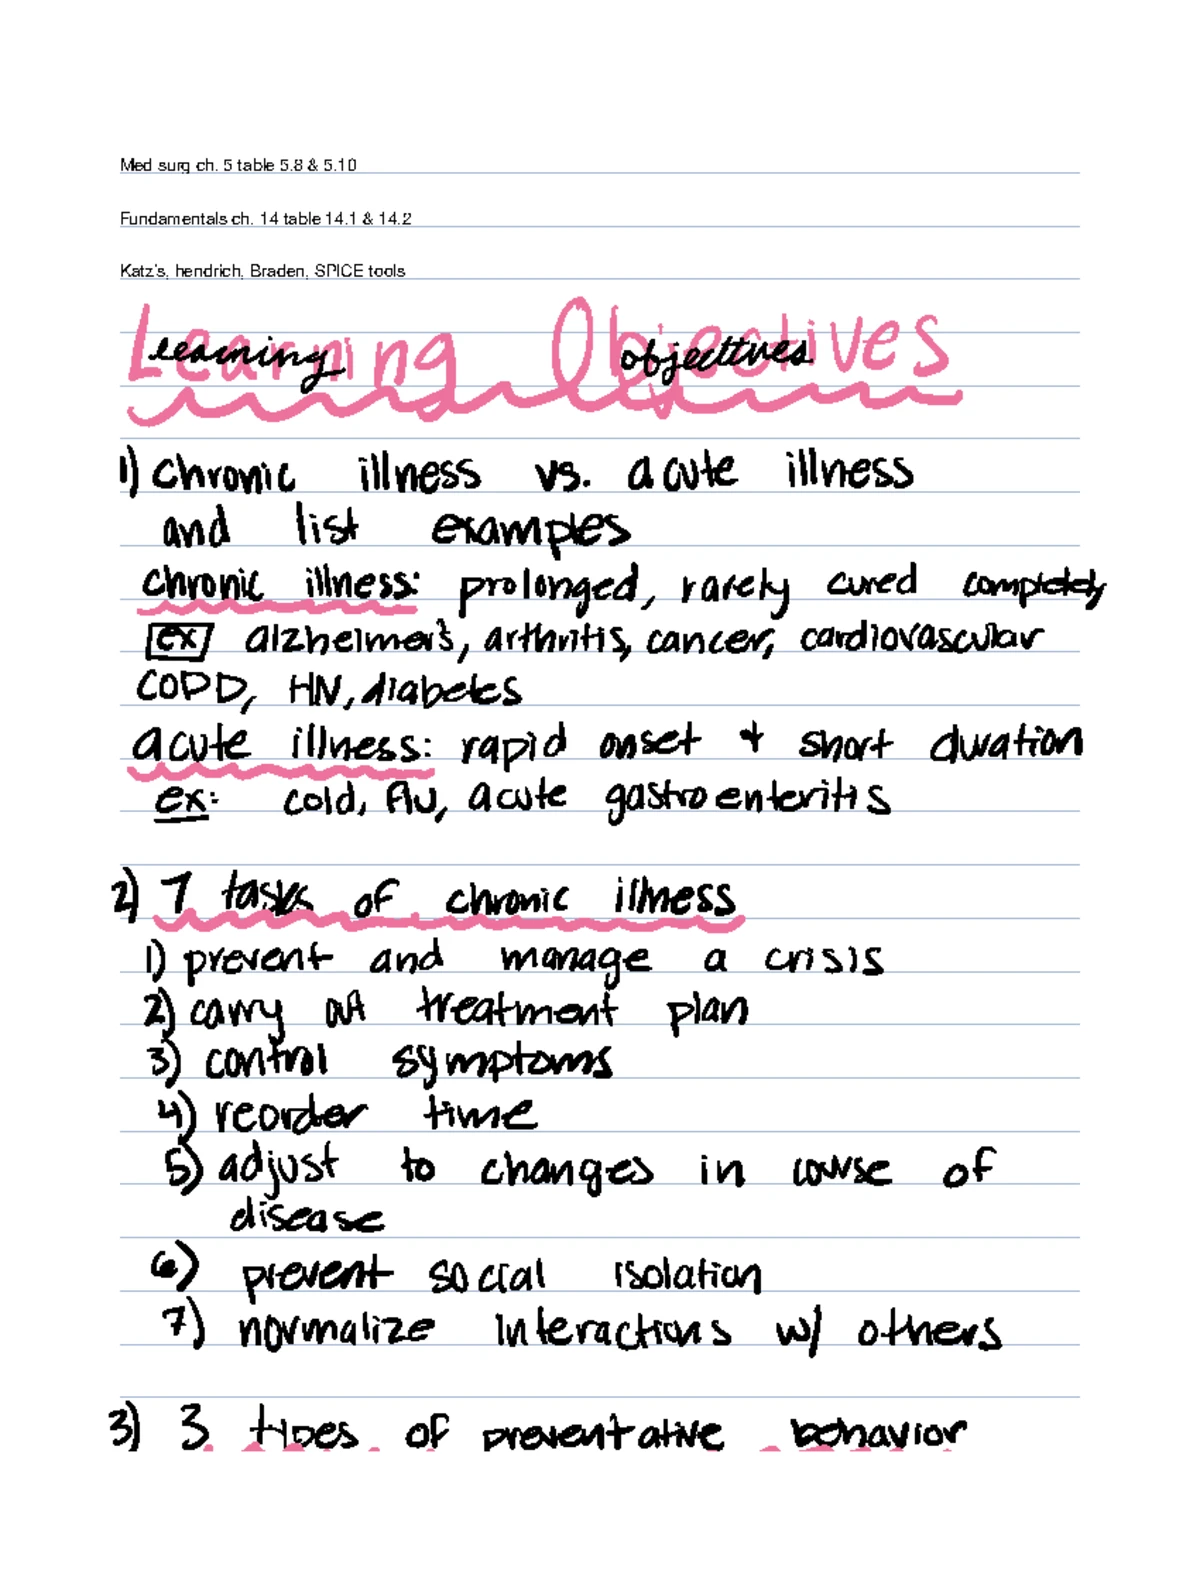 Med surg ch. 5 table 5.8 & 5.10
Fundamentals ch. 14 table 14.1 & 14.2
Katz's, hendrich, Braden, SPICE tools
Learning Objectives
learning objecttives
1) chronic illness vs. acute illness
and list examples
chronic illness: prolonged, rarely cured completely
ex alzheimer's, arthritis, cancer, cardiovascular
COPD, HN, diabetes
acute illness: rapid onset + short duration
ex: cold, flu, acute gastroenteritis
2) 7 tasks of chronic illness
1) prevent and manage a crisis
2) carry out treatment plan
3) control symptoms
4) reorder time
5) adjust to changes in course of
disease
6) prevent social isolation
7) normalize interactions w/ others
3) 3 types of preventative behavior